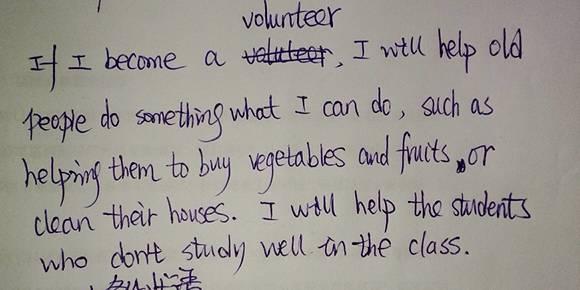 volunteer
If I become a valuteer, I will help old
people do something what I can do, such as
helping them to buy vegetables and fruits, or
clean their houses. I will help the students
who don't study well in the class.